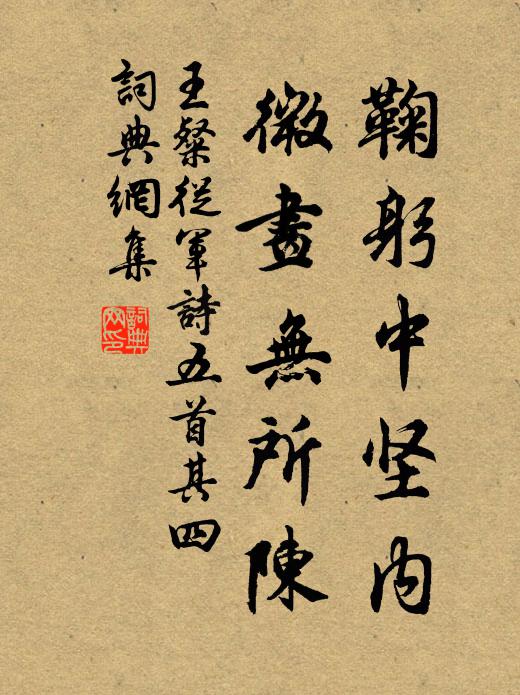 鞠躬中坚内
微畫無所陳
王粲從軍詩五首其四
詞典網集
詞典网印